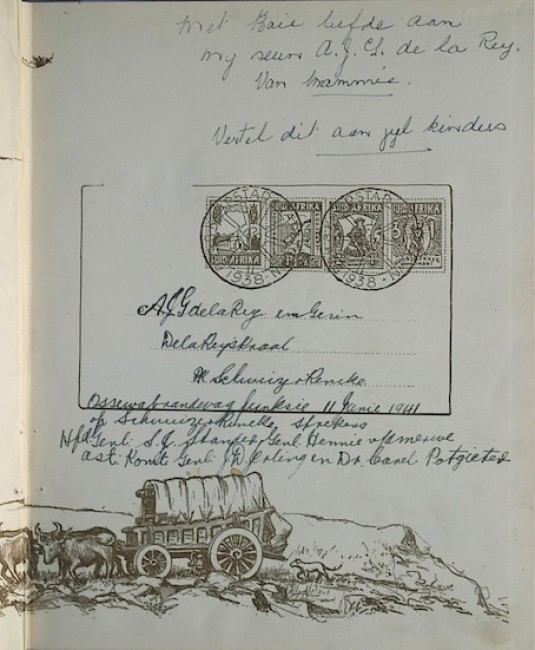 met Baie liefde aan
my seun A. J. Ch. de la Rey.
Van Mammie.
Vertel dit aan jyl kinders
POSTAD
POSTAD
SUID-AFRIKA
SUID-AFRIKA
SUID-AFRIKA
SUID-AFRIKA
1938
1938
A J G de la Rey en Gesin
DelaReyskraal
Schweizer Reneke
Ossewabrandwag funksie 11 Junie 1941
op Schweizer Reneke, sprekers
Genl. S. J. Genl. Hennie v d merwe
ast: Komdt Genl: J. D. en Dr. Carel Potgieter